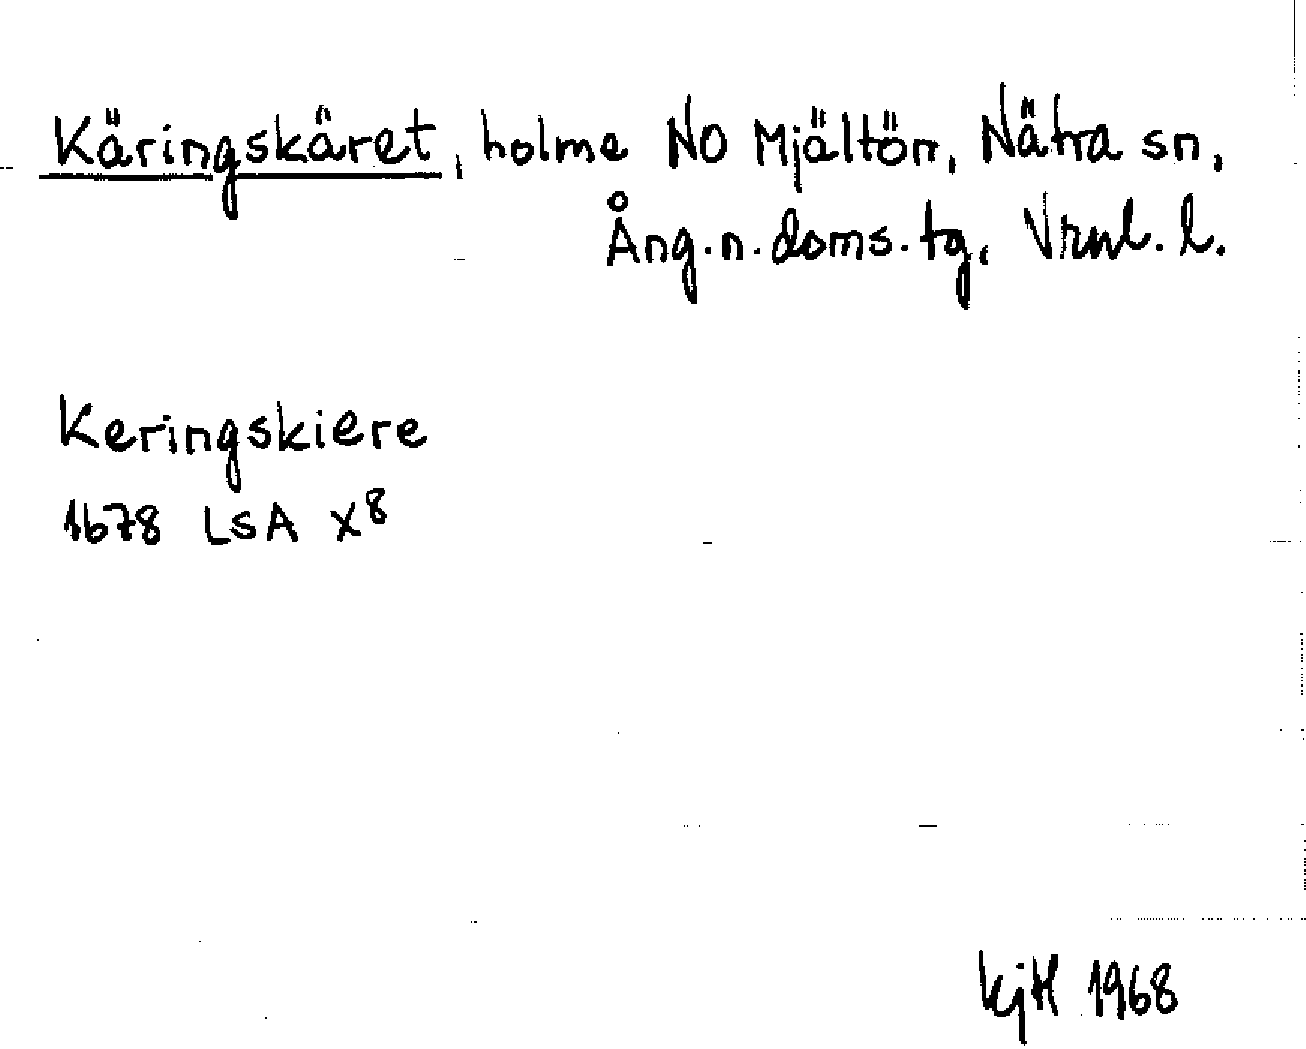 Käringskäret, holme NO Mjältön, Nätra sn,
Ång.n.doms.tg. Vrnl. l.
Keringskiere
1678 LSA X8
KjH 1968